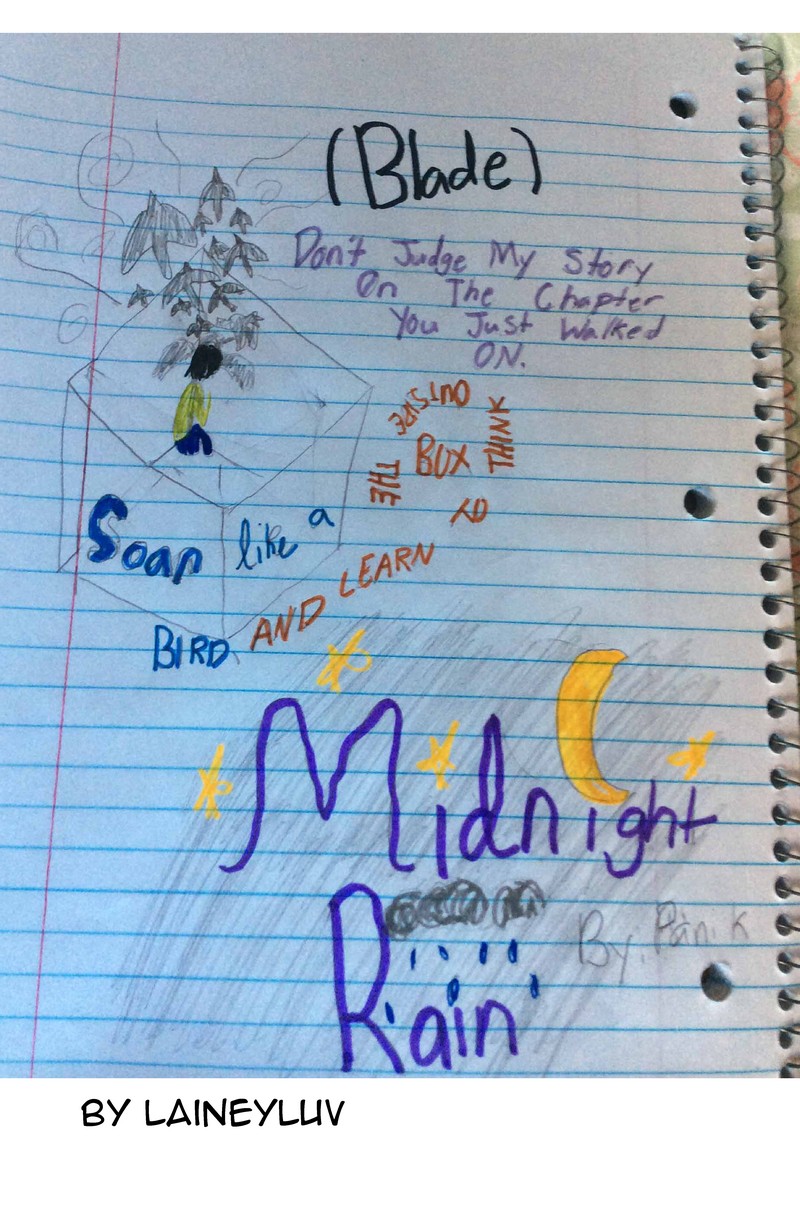 (Blade)
Don't Judge My Story
On The Chapter
You Just Walked
ON.
Soar like a
BIRD AND LEARN
TO
THINK
OUTSIDE
THE
BOX
Midnight
Rain
By. Panik
BY LAINEYLUV